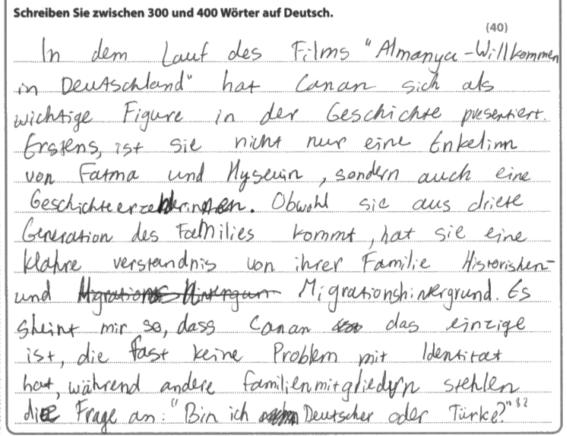 Schreiben Sie zwischen 300 und 400 Wörter auf Deutsch.
(40)
In dem Lauf des Films "Almanya - Willkommen
in Deutschland" hat Canan sich als
wichtige Figure in der Geschichte presentiert.
Erstens, ist sie nicht nur eine Enkelinn
von Fatma und Hyseuin, sondern auch eine
Obwohl sie aus driete
Generation des Families kommt, hat sie eine
klahre verstandnis von ihrer Familie Historishen-
und Migrationshinkergrund. Es
sheint mir so, dass Canan das einzige
ist, die fast keine Problem mit Identitat
hat, während andere familienmitgliedern stehlen
die Frage an: "Bin ich Deutscher oder Türke?"